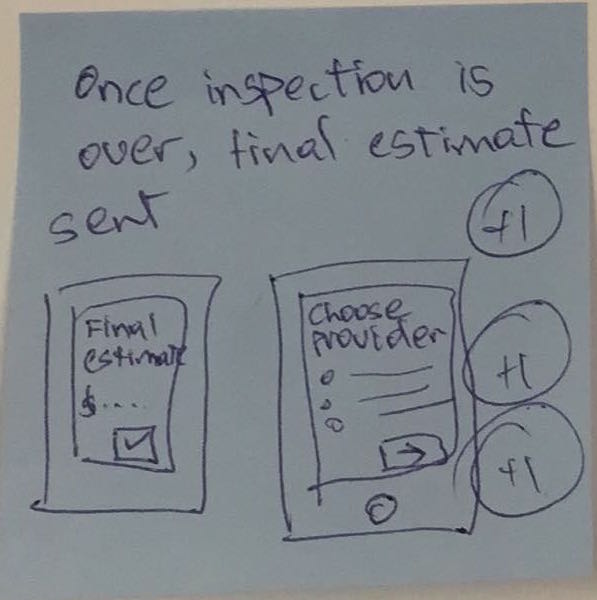 Once inspection is
over, final estimate
sent
+1
Final
estimate
$....
Choose
provider
+1
+1